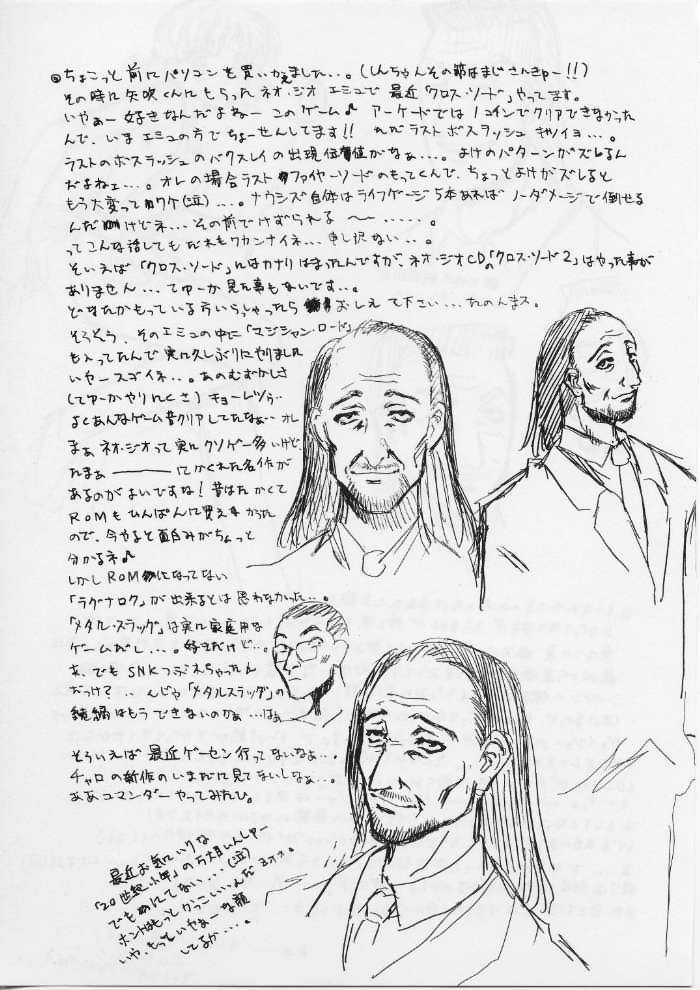 ◎ちょこっと前にパソコンを買いかえました…。(しんちゃんその節はまじさんきゅー!!)
その時に矢吹くんにもらったネオ・ジオエミュで最近「クロス・ソード」やってます。
いやぁー好きなんだよねーこのゲーム♪ アーケードでは1コインでクリアできなかった
んで、いまエミュの方でちょーせんしてます!! ただラストボスラッシュキツイヨ…。
ラストのボスラッシュのバクスレイの出現位置がなぁ…。よけのパターンがズレるん
だよねェ…。オレの場合ラストファイヤーソードのもってくんで、ちょっとよけがズレると
もう大変ってワケ(泣)…。ナウシズ自体はライフゲージ5本あればノーダメージで倒せる
んだけどネ…その前でけずられる〜……。
ってこんな話してもだれもワカンナイネ…申し訳ない…。
そいえば「クロス・ソード」にはカナリはまったんですが、ネオ・ジオCDの「クロス・ソード2」はやった事が
ありません…てゆーか見た事もないです…。
どなたかもっている方いらしゃったらおしえて下さい…たのんまス。
そうそう、そのエミュの中に「マジシャン・ロード」
も入ってたんで実に久しぶりにやりました
いやースゴイネ…。あのむずかしさ
(てゆーかやりにくさ)キョーレツぅ…
よくあんなゲーム昔クリアしてたなぁ…オレ
まぁネオ・ジオって実にクソゲー多いけど
たまぁ――にかくれた名作が
あるのがよいですね!昔はたかくて
ROMもひんぱんに買えなかった
ので、今やると面白みがちょっと
分かるネ♪
しかしROMになってない
「ラグナロク」が出来るとは思わなかった…。
「メタル・スラッグ」は実に家庭用な
ゲームだし…。好きだけど…。
あ、でもSNKつぶれちゃったん
だっけ?…んじゃ「メタルスラッグ」の
続編はもうできないのかぁ…はぁ
そういえば最近ゲーセン行ってないなぁ…。
チャロの新作のいまだに見てないしなぁ…。
ああコマンダーやってみたひ。
最近お気にいりな
「20世紀少年」の万丈目しんしゃー
でもにてない…(泣)
ホントはもっとかっこいいんだヨォォ。
いや、もっといやぁーな顔
してるか…。